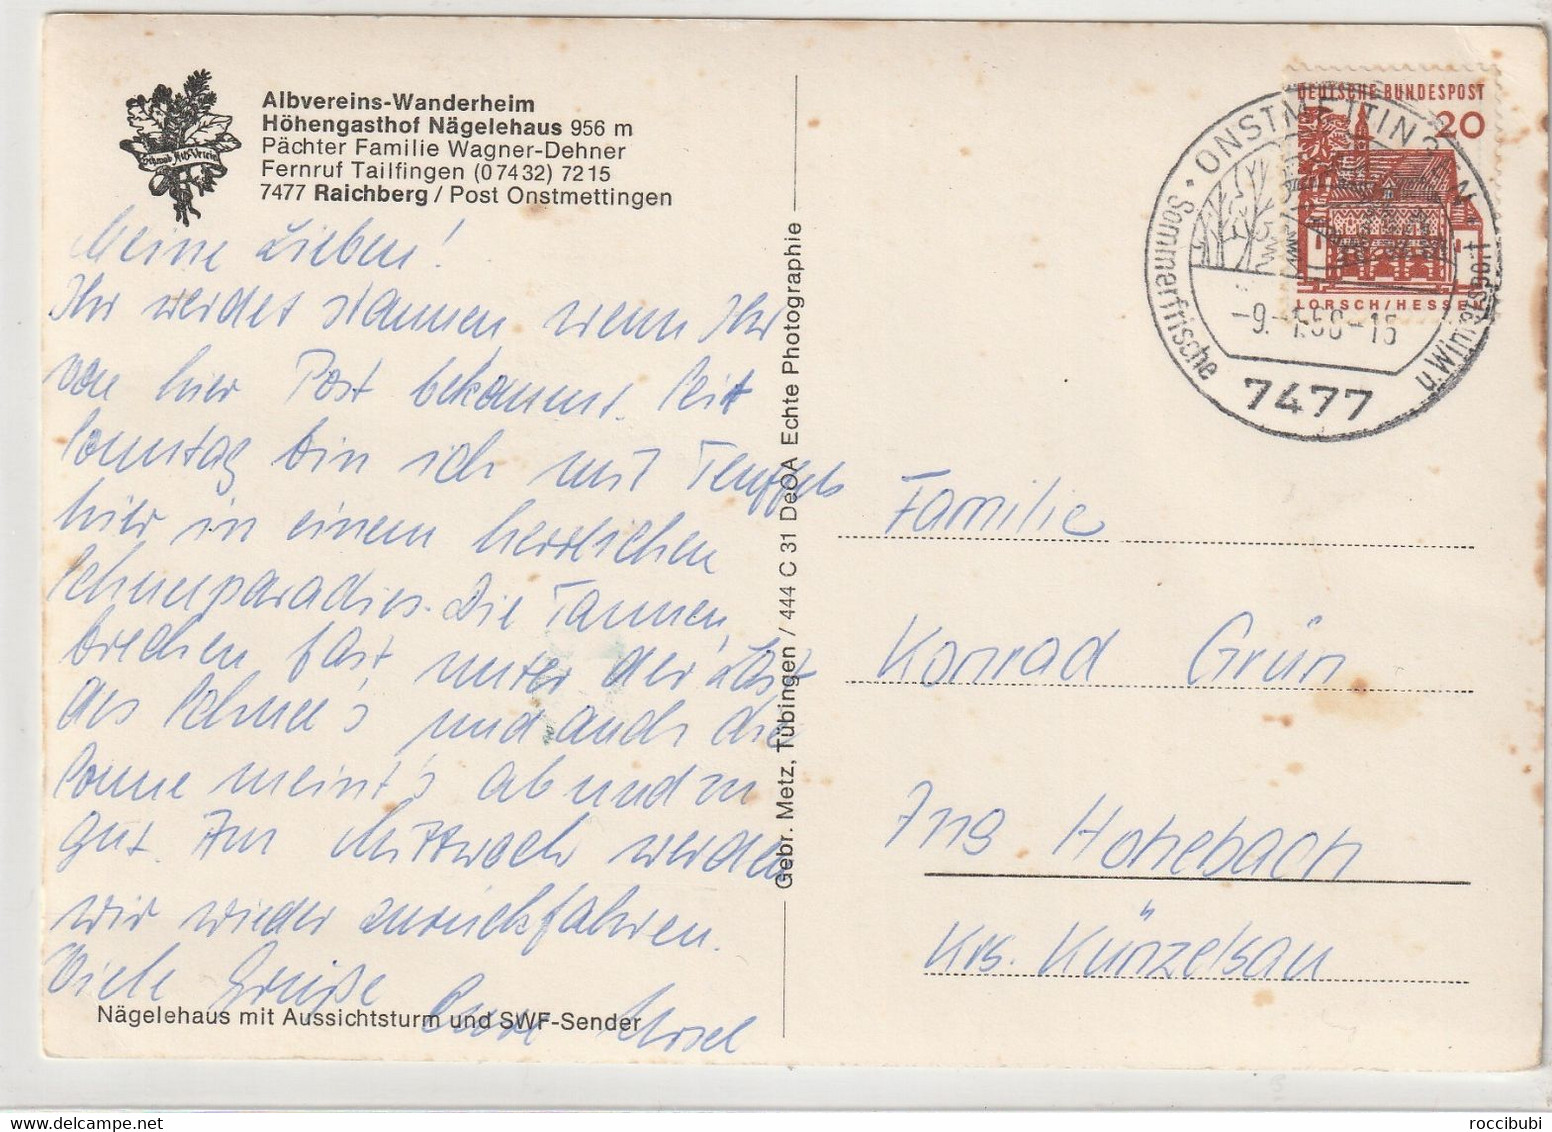 Schwäb. Alb-Verein
Albvereins-Wanderheim
Höhengasthof Nägelehaus 956 m
Pächter Familie Wagner-Dehner
Fernruf Tailfingen (0 74 32) 72 15
7477 Raichberg / Post Onstmettingen
Meine Lieben!
Ihr werdet staunen wenn Ihr
von hier Post bekommt. Seit
Sonntag bin ich mit Teuffels
hier in einem herrlichen
Schneeparadies. Die Tannen
brechen fast unter der Last
des Schnee's und auch die
Sonne meint's ab und zu
gut. Am Mittwoch werden
wir wieder zurückfahren.
Viele Grüße
Nägelehaus mit Aussichtsturm und SWF-Sender
Gebr. Metz, Tübingen / 444 C 31 DeOA Echte Photographie
DEUTSCHE BUNDESPOST
20
LORSCH/HESSEN
ONSTMETTINGEN
Sommerfrische u. Wintersport
-15
7477
Familie
Konrad Grün
Ing Hohebach
Krs. Künzelsau
roccibubi